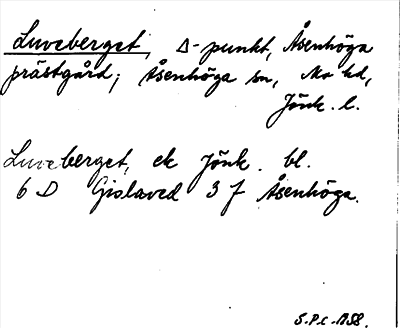 Luveberget, Δ-punkt, Åsenhöga
prästgård; Åsenhöga sn, Mo hd,
Jönk. l.
Luveberget, ek Jönk. bl.
6 D Gislaved 3 f Åsenhöga.
S.P.C. 1958.